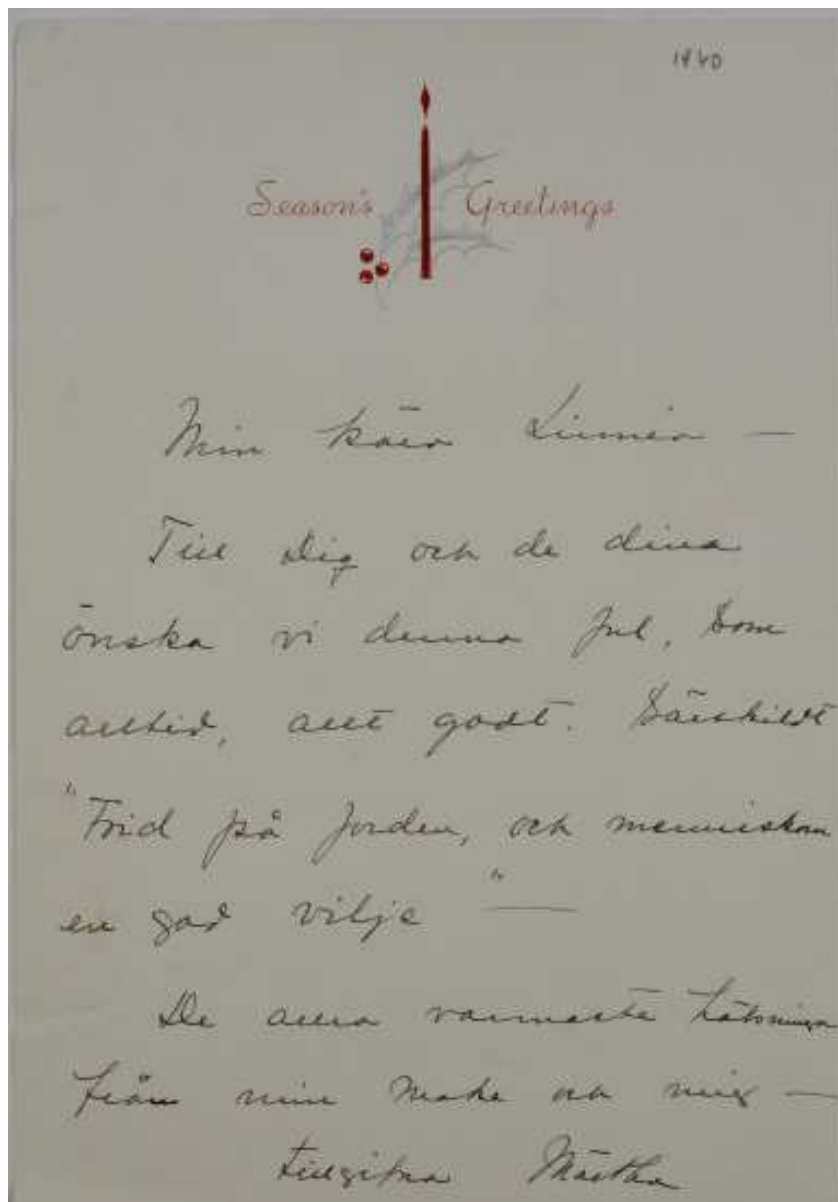 1940
Season's Greetings
Min kära Linnéa —
Till Dig och de dina
önska vi denna Jul, som
alltid, allt godt. Särskildt
"Frid på Jorden, och menniskan
en god vilje" —
De allra varmaste hälsningar
från min make och mig —
tillgifna Märtha